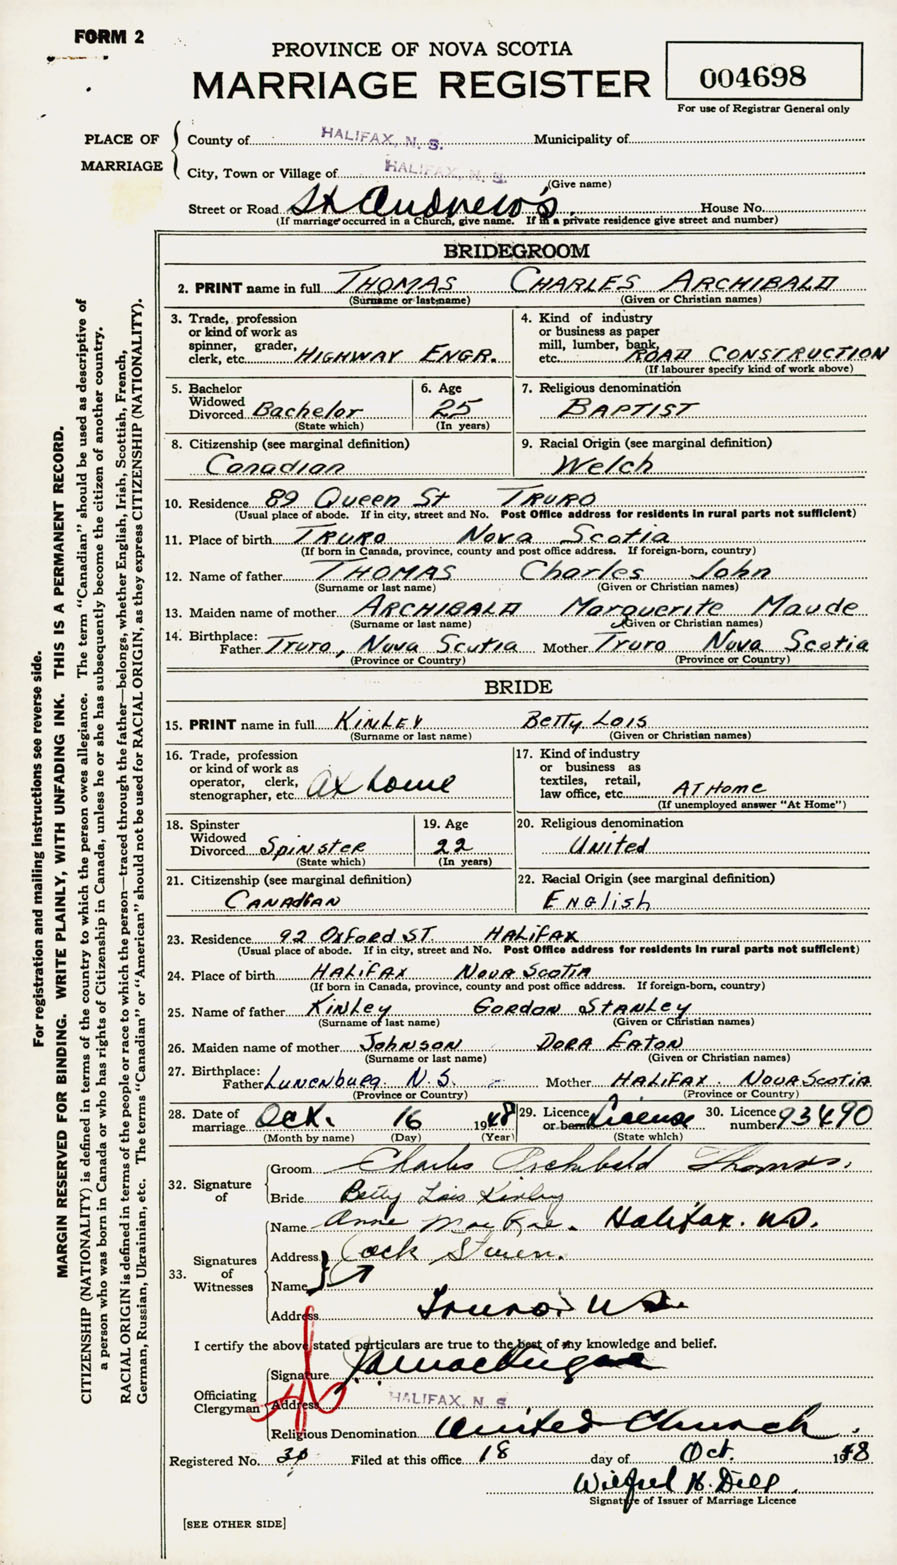 FORM 2
PROVINCE OF NOVA SCOTIA
MARRIAGE REGISTER
004698
For use of Registrar General only
PLACE OF MARRIAGE
County of HALIFAX, N. S. Municipality of
City, Town or Village of HALIFAX, N. S.
(Give name)
Street or Road St Andrew's. House No.
(If marriage occurred in a Church, give name. If in a private residence give street and number)
BRIDEGROOM
2. PRINT name in full THOMAS CHARLES ARCHIBALD
(Surname or last name) (Given or Christian names)
3. Trade, profession or kind of work as spinner, grader, clerk, etc. HIGHWAY ENGR.
4. Kind of industry or business as paper mill, lumber, bank, etc. ROAD CONSTRUCTION
(If labourer specify kind of work above)
5. Bachelor Widowed Divorced Bachelor
(State which)
6. Age 25
(In years)
7. Religious denomination
BAPTIST
8. Citizenship (see marginal definition)
Canadian
9. Racial Origin (see marginal definition)
Welch
10. Residence 89 Queen St TRURO
(Usual place of abode. If in city, street and No. Post Office address for residents in rural parts not sufficient)
11. Place of birth TRURO Nova Scotia
(If born in Canada, province, county and post office address. If foreign-born, country)
12. Name of father THOMAS Charles John
(Surname or last name) (Given or Christian names)
13. Maiden name of mother ARCHIBALD Marguerite Maude
(Surname or last name) (Given or Christian names)
14. Birthplace:
Father Truro, Nova Scotia Mother Truro Nova Scotia
(Province or Country) (Province or Country)
BRIDE
15. PRINT name in full KINLEY Betty Lois
(Surname or last name) (Given or Christian names)
16. Trade, profession or kind of work as operator, clerk, stenographer, etc. At home
17. Kind of industry or business as textiles, retail, law office, etc. AT Home
(If unemployed answer "At Home")
18. Spinster Widowed Divorced Spinster
(State which)
19. Age 22
(In years)
20. Religious denomination
United
21. Citizenship (see marginal definition)
CANADIAN
22. Racial Origin (see marginal definition)
English
23. Residence 92 Oxford ST HALIFAX
(Usual place of abode. If in city, street and No. Post Office address for residents in rural parts not sufficient)
24. Place of birth HALIFAX NOVA SCOTIA
(If born in Canada, province, county and post office address. If foreign-born, country)
25. Name of father Kinley GORDON STANLEY
(Surname of last name) (Given or Christian names)
26. Maiden name of mother Johnson DORA EATON
(Surname or last name) (Given or Christian names)
27. Birthplace:
Father LUNENBURG N.S. Mother HALIFAX. NOVA SCOTIA
(Province or Country) (Province or Country)
28. Date of marriage Oct. 16 1948
(Month by name) (Day) (Year)
29. Licence or banns License
(State which)
30. Licence number 93490
32. Signature of
Groom Charles Archibald Thomas.
Bride Betty Lois Kinley
33. Signatures of Witnesses
Name Anne MacRae. Halifax. N.S.
Address Jack
Name
Address Truro. N.S.
I certify the above stated particulars are true to the best of my knowledge and belief.
Officiating Clergyman
Signature
Address HALIFAX, N. S.
Religious Denomination United Church.
Registered No. 30 Filed at this office 18 day of Oct. 1948
Wilfred H. Dill
Signature of Issuer of Marriage Licence
[SEE OTHER SIDE]
For registration and mailing instructions see reverse side.
MARGIN RESERVED FOR BINDING. WRITE PLAINLY, WITH UNFADING INK. THIS IS A PERMANENT RECORD.
CITIZENSHIP (NATIONALITY) is defined in terms of the country to which the person owes allegiance. The term "Canadian" should be used as descriptive of
a person who was born in Canada or who has rights of Citizenship in Canada, unless he or she has subsequently become the citizen of another country.
RACIAL ORIGIN is defined in terms of the people or race to which the person—traced through the father—belongs, whether English, Irish, Scottish, French,
German, Russian, Ukrainian, etc. The terms "Canadian" or "American" should not be used for RACIAL ORIGIN, as they express CITIZENSHIP (NATIONALITY).